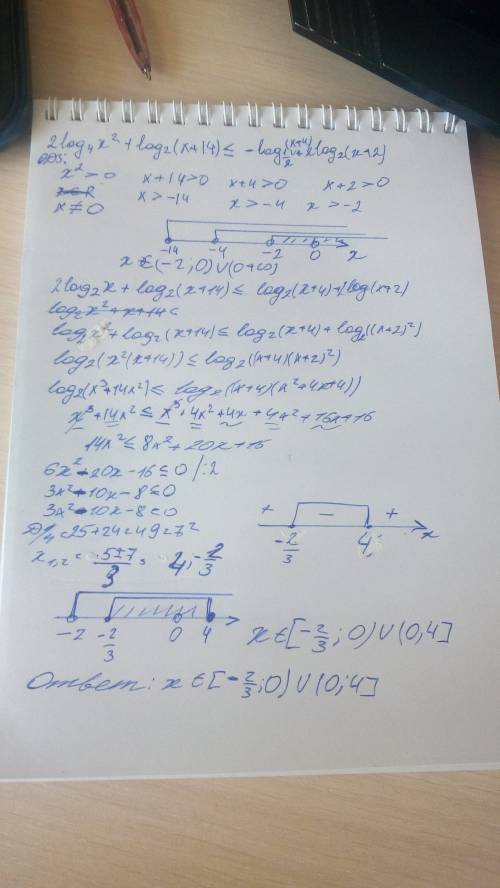 2log₄x² + log₂(x+14) ≤ -log₁/₂(x+4) + 2log₂(x+2)
ОДЗ:
x² > 0 x+14>0 x+4>0 x+2>0
x≠0 x>-14 x>-4 x>-2
-14 -4 -2 0 x
x∈(-2;0)∪(0+∞)
2log₂x + log₂(x+14) ≤ log₂(x+4)+2log(x+2)
log₂x²+x+14≤
log₂x²+log₂(x+14) ≤ log₂(x+4)+log₂((x+2)²)
log₂(x²(x+14)) ≤ log₂((x+4)(x+2)²)
log₂(x³+14x²) ≤ log₂((x+4)(x²+4x+4))
x³+14x² ≤ x³+4x²+4x+4x²+16x+16
14x² ≤ 8x²+20x+16
6x²-20x-16≤0 /:2
3x²-10x-8≤0
3x²-10x-8=0
D/4=25+24=49=7²
x₁,₂ = 5±7/3 = 4; -2/3
+ - +
-2/3 4 x
-2 -2/3 0 4
x∈[-2/3;0)∪(0,4]
Ответ: x∈[-2/3;0)∪(0;4]